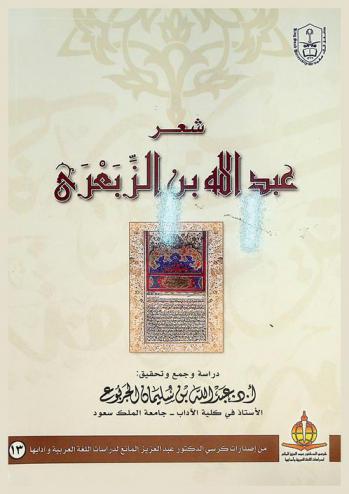 شعر
عبد الله بن الزِّبَعْرَى
دراسة وجمع وتحقيق:
أ.د. عبد الله بن سليمان الجربوع
الأستاذ في كلية الآداب - جامعة الملك سعود
من إصدارات كرسي الدكتور عبد العزيز المانع لدراسات اللغة العربية وآدابها
١٣